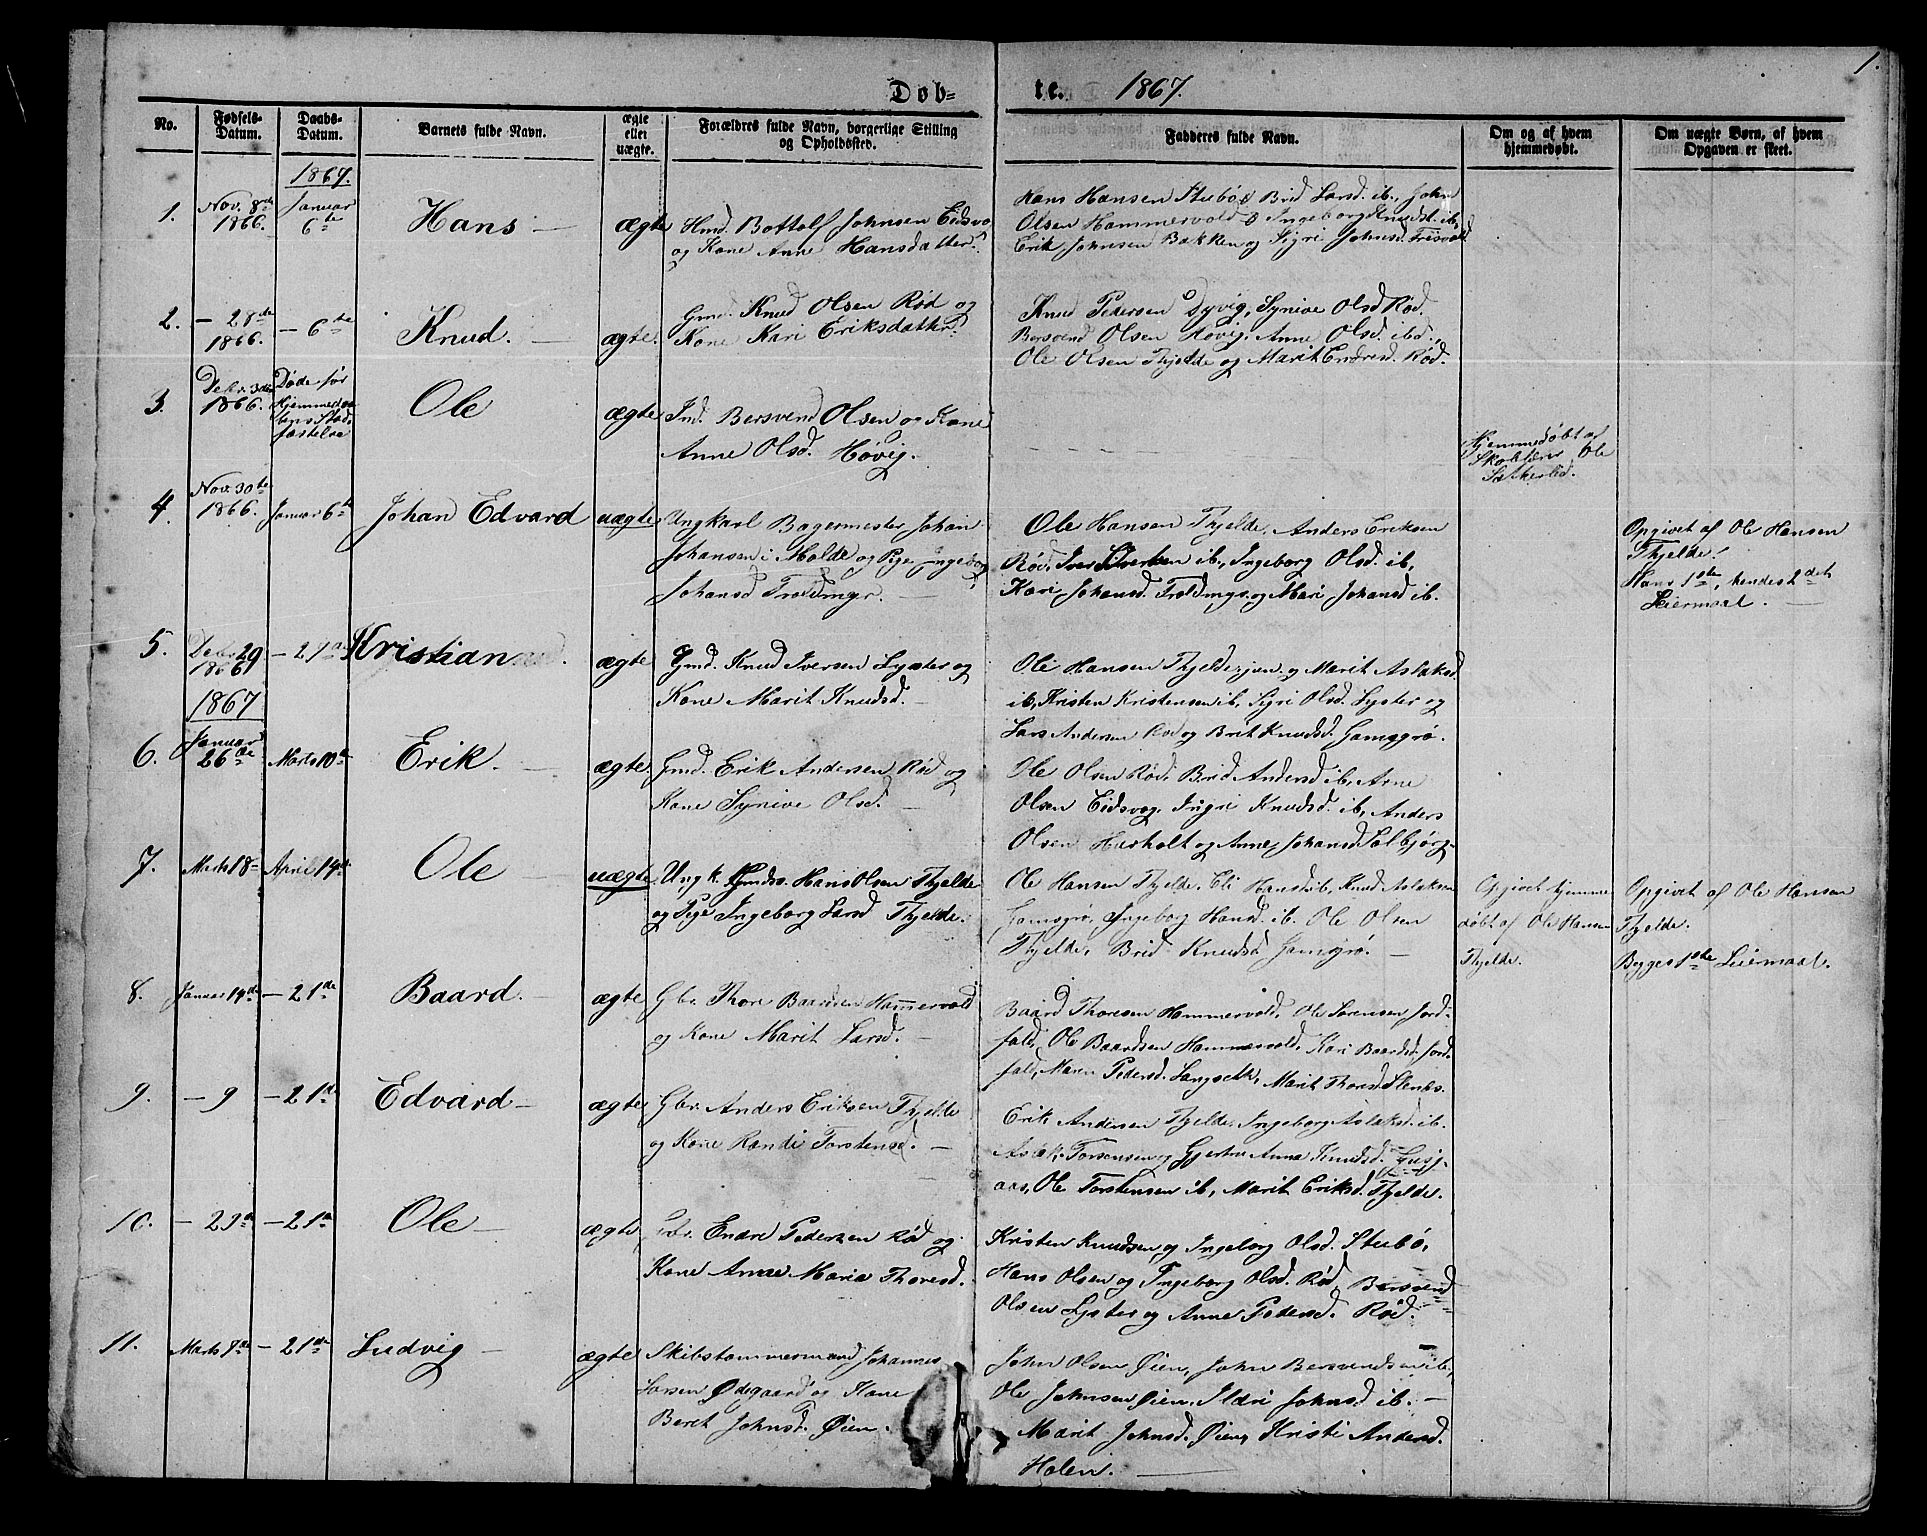 1.
Døb- te. 1867.
No.
Fødsels-
Datum.
Daabs-
Datum.
Barnets fulde Navn.
ægte
eller
uægte.
Forældres fulde Navn, borgerlige Stilling
og Opholdssted.
Fadderes fulde Navn.
Om og af hvem
hjemmedøbt.
Om uægte Børn, af hvem
Opgaven er skeet.
1867.
1.
Nov. 8de
1866.
Januar
6te
Hans
ægte
Hmd. Bottolf Johnsen Eidsvo
og Kone Anne Hansdatter.
Hans Hansen Stubø, Brid Larsd. ib., John
Olsen Hammervold, Ingeborg Knudsd. ib.,
Erik Johnsen Bakken og Sigri Johnsd.
2.
- 28de
1866.
- 6te
Knud.
ægte.
Gmd. Knud Olsen Rød og
Kone Kari Eriksdatter.
Knud Pedersen Dyvig, Synive Olsd Rød.
Bersvend Olsen Høvig, Anne Olsd. ibd.,
Ole Olsen Thjelde og Marit Endresd. Rød.
3.
Debr. 3die
1866.
Døde før
Hjemmedaa-
bens Stad-
fæstelse
Ole
ægte
Ind. Bersvend Olsen og Kone
Anne Olsd. Høvig.
Hjemmedøbt af
Skolelærer Ole
4.
Nov. 30te
1866.
Januar 6te
Johan Edvard
uægte
Ungkarl Bagermester Johan
Johansen i Molde og Pige Ingeborg
Johansd Troldmyr.
Ole Hansen Thjelde, Anders Eriksen
Rød, Iver Iversen ib., Ingeborg Olsd. ib,
Kari Johansd. Troldmyr, og Mari Johansd ib.
Opgivet af Ole Hansen
Thjelde.
Hans 1ste, hendes 2det
Leiermaal.
5.
Debr 29
1866
- 27de
Kristian
ægte
Gmd. Knud Iversen Lyster og
Kone Marit Knudsd.
Ole Hansen Thjelde og Marit Aslaksd
ib, Kristen Kristensen ib, Sigri Olsd. Lyster og
Lars Andersen Rød og Brit Knudsd. Gamsgrø.
1867
6.
Januar
26de
Marts 10de
Erik.
ægte,
Gmd. Erik Andersen Rød og
Kone Synive Olsd.
Ole Olsen Rød, Brid Andersd ib, Arne
Olsen Eidsvog, Ingri Knudsd. ib, Anders
Olsen Husholt og Anne Johansd Solbjørg.
7.
Marts 18
April 14de
Ole
uægte
Ungk. Gmds. Hans Olsen Thjelde
og Pige Ingeborg Larsd Thjelde.
Ole Hansen Thjelde, Eli Hansd ib, Knud Aslaksen
Gamsgrø, Ingeborg Hansd. ib. Ole Olsen
Thjelde, Brid Knudsd Gamsgrø.
Opgivet hjemme
døbt af Ole Hansen
Thjelde.
Opgivet af Ole Hansen
Thjelde.
Begges 1ste Leiermaal.
8.
Januar 14de
- 21de
Baard.
ægte
Gbr. Thore Baardsen Hammervold
og Kone Marit Larsd.
Baard Thoresen Hammervold, Ole Sørensen Jord-
fald, Ole Baardsen Hammervold, Kari Baardsd. Jord-
fald, Maren Pedersd. Langseth, Marit Thoresd.
9.
- 9
- 21de
Edvard
ægte
Gbr. Anders Eriksen Thjelde
og Kone Randi Torstensd.
Erik Andersen Thjelde, Ingeborg Aslaksd. ib.
Aslak Torsensen og Gjertru Anna Knudsd.
aas, Ole Torstensen ib, Marit Eriksd. Thjelde.
10.
- 29de
- 21de
Ole
ægte
Gbr. Endre Pedersen Rød og
Kone Anne Maria Thoresd.
Kristen Knudsen og Ingeborg Olsd. Stubø,
Hans Olsen og Ingeborg Olsd. Rød, Bersvend
Olsen Lyster og Anne Pedersd. Rød.
11.
Marts 7de
- 21de
Ludvig
ægte
Skibstømmermand Johannes
Larsen Ødegaard og Kone
Beret Johnsd. Øien.
John Olsen Øien, John Bersvendsen ib,
Ole Johnsen Øien, Ildri Johnsd ib.
Marit Johnsd. Øien, Kristi Andersd.
Holen.